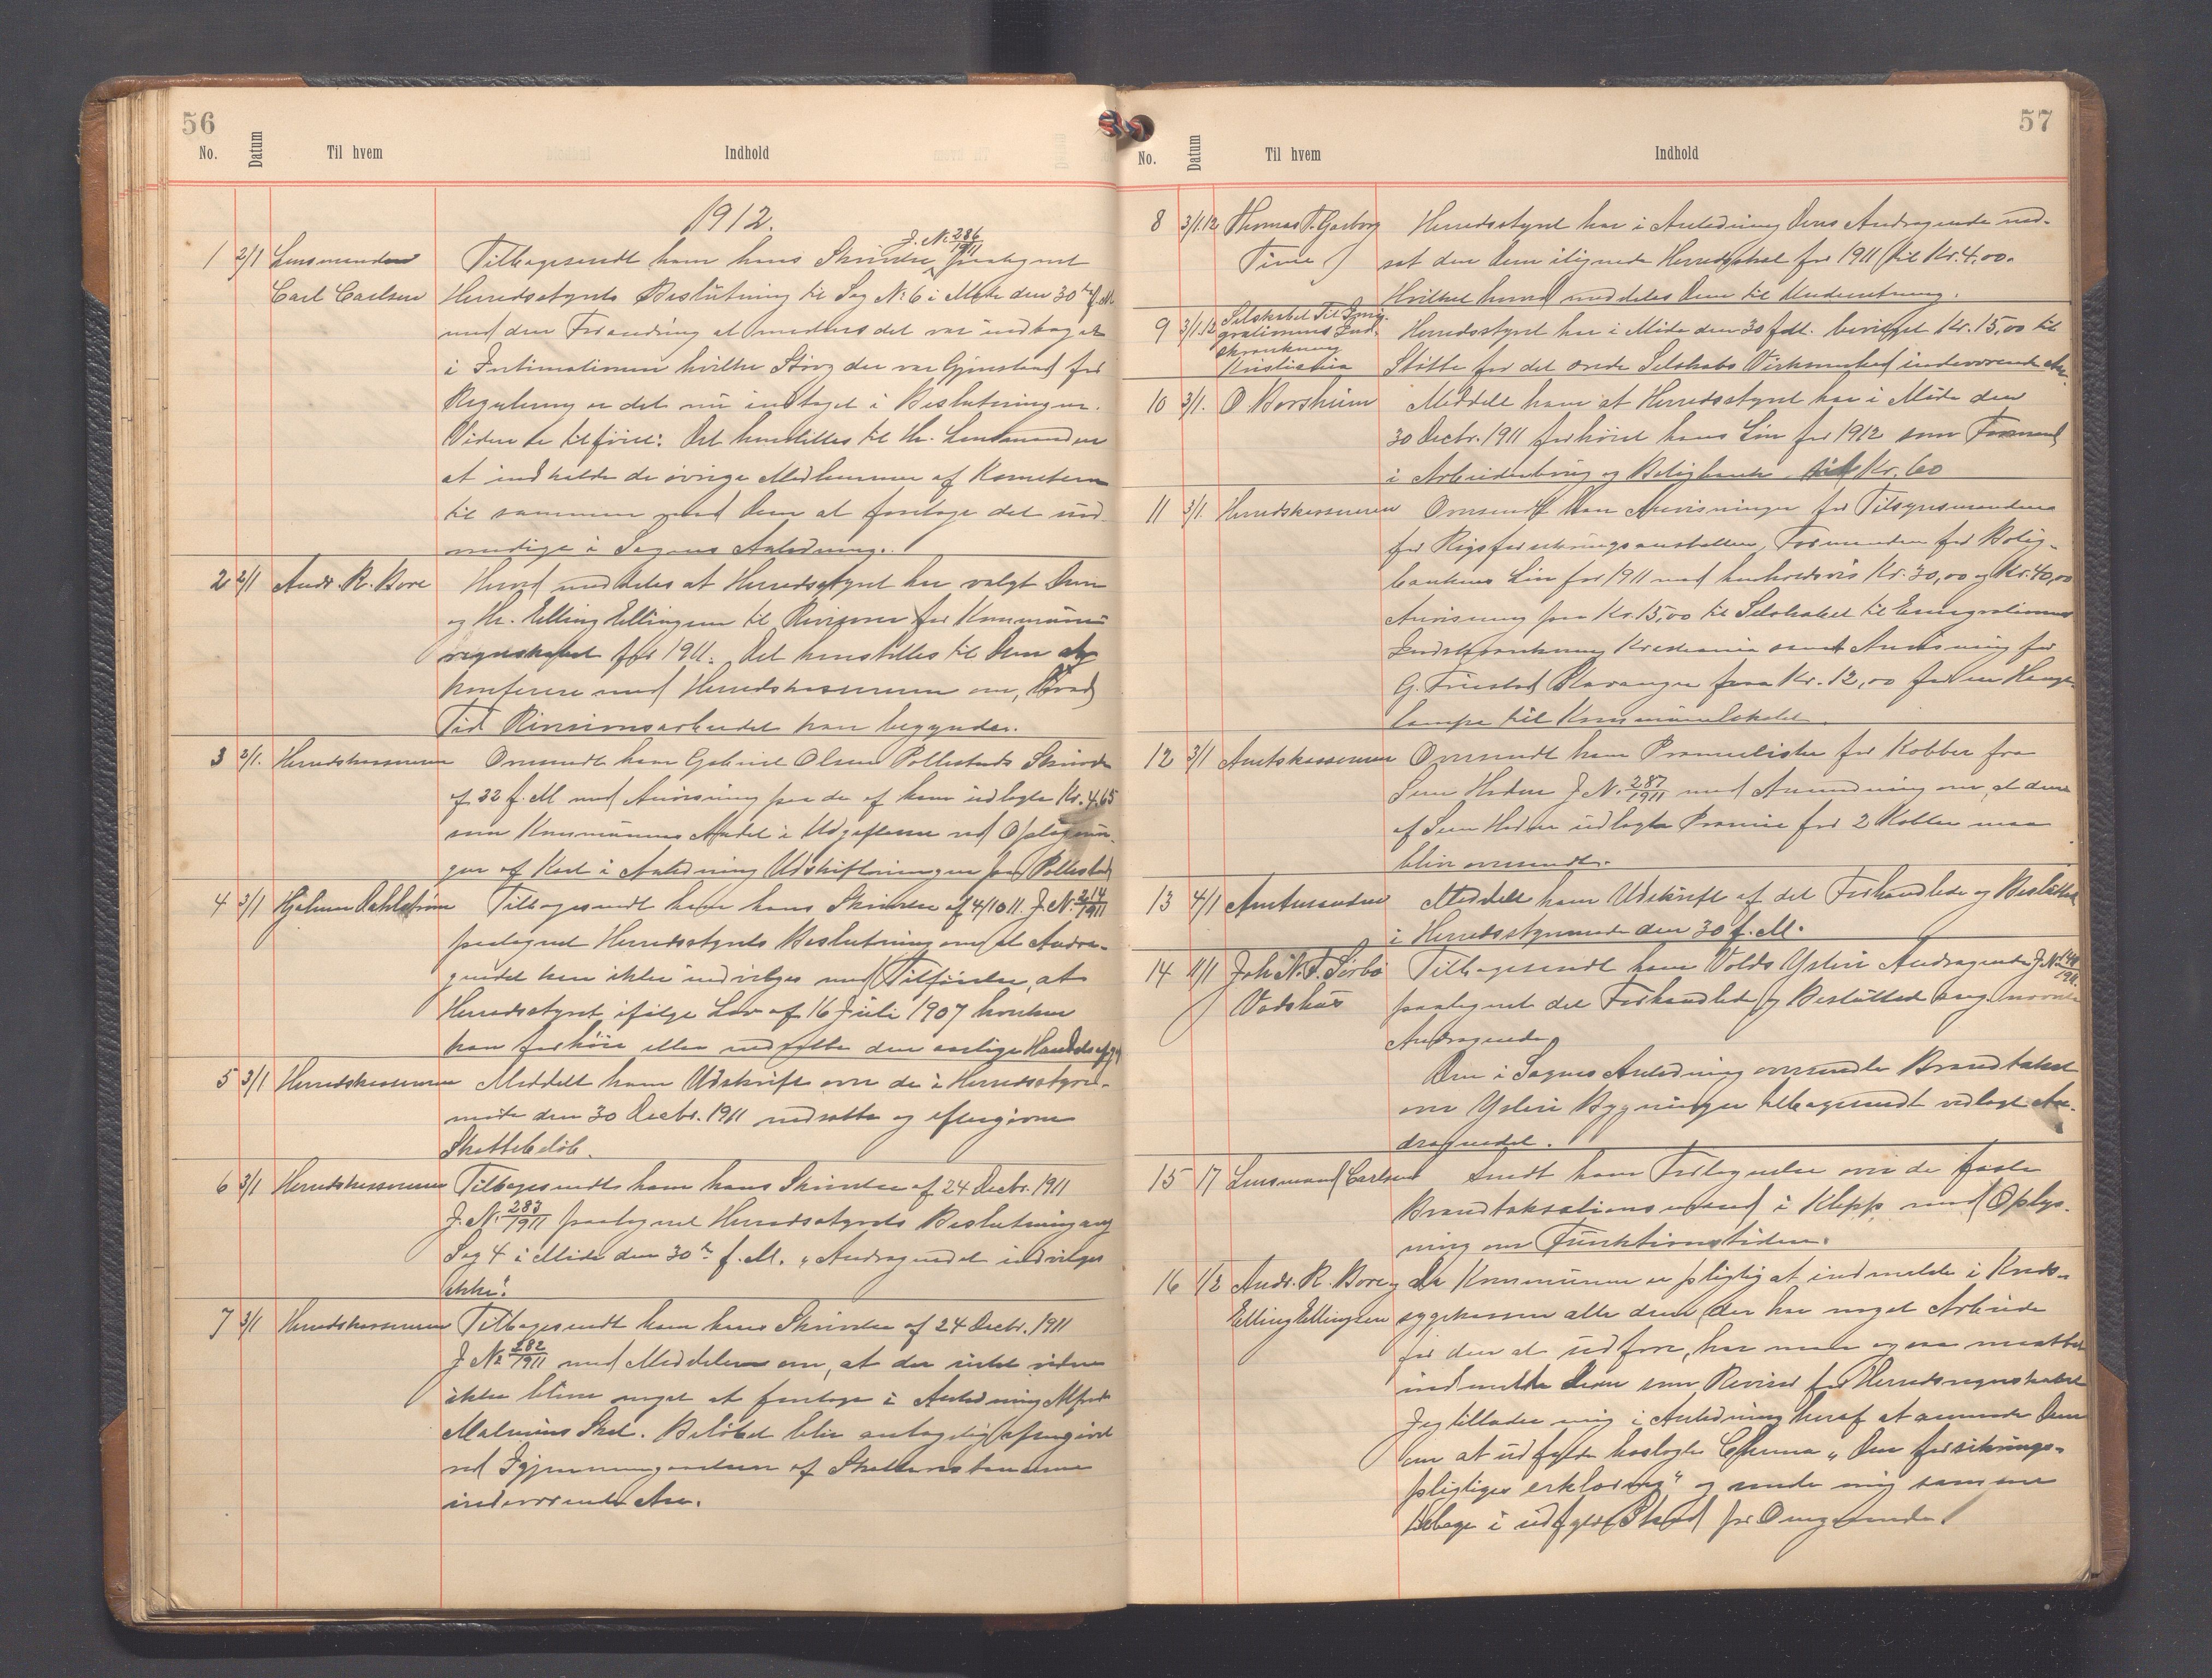 56
No. Datum Til hvem Indhold
1912.
J. No. 286/1911
1 2/1 Lensmanden Tilbagesendt ham hans Skrivelse paategnet
Carl Carlsen Herredsstyrets Beslutning til Sag No 6 i Møde den 30te f. M.
med den Forandring at medens det var indtaget
i Intimationen hvilke Störz der var Gjenstand for
Regulering er det nu indtaget i Beslutningen.
Videre er tilföiet: Det henstilles til Hr. Lensmanden
at indkalde de övrige Medlemmer af Komiteen
til sammen med Dem at foretage det nöd-
vendige i Sagens Anledning.
2 2/1 Andr. R. Bore Herved meddeles at Herredsstyret har valgt Dem
og Hr. Elling Ellingsen til Revisorer for Kommune
regnskabet for 1911. Det henstilles til Dem at
konferere med Herredskassereren om, hvad
Tid Revisionsarbeidet kan begynder.
3 2/1. Herredskassereren Oversendt ham Gabriel Olsen Pollestads Skrivelse
af 22 f. M med Anvisning paa de af ham udlagte Kr. 4.65
som Kommunens Andel i Udgifterne ved Optagnin-
gen af Kart i Anledning Udskiftningen paa Pollestad
4 3/1 Hjalmar Dahlström Tilbagesendt ham hans Skrivelse af 4/10 11. J. No. 214/1911
paategnet Herredsstyrets Beslutning om at Andra-
gendet kan ikke indvilges med Tilföielse, at
Herredsstyret ifölge Lov af 16 Juli 1907 hverken
kan forhöie eller nedsætte den aarlige Handelsafgift
5 3/1 Herredskassereren Meddelt ham Udskrift over de i Herredsstyre-
møde den 30 Decbr. 1911 nedsatte og eftergivne
Skattebelöb.
6 3/1 Herredskassereren Tilbagesendt ham hans Skrivelse af 24 Decbr. 1911
J. No. 283/1911 paategnet Herredsstyrets Beslutning ang
Sag 4 i Möde den 30te f. M. „Andragendet indvilges
ikke".
7 3/1 Herredskassereren Tilbagesendt ham hans Skrivelse af 24 Decbr. 1911
J No 282/1911 med Meddelelse om, at der intet videre
ikke bliver noget at foretage i Anledning Alfred
Malmins Skat. Belöbet blir antagelig eftergivet
ved Igjennemgaaelsen af Skatterestancerne
indeværende Aar.
57
No. Datum Til hvem Indhold
8 3/1.12 Thomas T. Garborg Herredsstyret har i Anledning Deres Andragende ned-
Time sat den Dem ilignede Herredsskat for 1911 til Kr. 4.00.
Hvilket herved meddeles Dem til Underretning.
9 3/1.12 Selskabet Til Emi-
grationens Ind-
skrænkning
Kristiania
Herredsstyret har i Möde den 30 f. M. bevilget Kr. 15,00 til
Stötte for det ærede Selskabs Virksomhed indeværende Aar.
10 3/1. O. Borsheim Meddelt ham at Herredsstyret har i Möde den
30 Decbr. 1911 forhöiet hans Lön for 1912 som Formand
i Arbeiderbrug og Boligbank til Kr. 60
11 3/1. Herredskassereren Oversendt ham Anvisninger for Tilsynsmandens
for Rigsforsikringsanstalten, Formanden for Bolig-
bankens Lön for 1911 med henholdsvis Kr. 30,00 og Kr. 40,00
Anvisning paa Kr. 15,00 til Selskabet til Emigrationens
Indskrænkning Kristiania samt Anvisning for
G. Friestad Stavanger paa Kr. 12,00 for en Hænge-
lampe til Kommunelokalet.
12 3/1 Amtskassereren Oversendt ham Præmielister for Kobber fra
Sven Hodne J. No. 287/1911 med Anmodning om, at den
af Sven Hodne udlagte Præmie for 2 Kobber maa
bliver oversendt.
13 4/1 Amtmanden Meddelt ham Udskrift af det Forhandlede og Besluttede
i Herredsstyremøde den 30 f. M.
14 11/1 Joh. N. T. Sörbö Tilbagesendt ham Volds Ysteri Andragende J. No
Vadshus paategnet det Forhandlede og Besluttede ang. nævnte
Andragende
Den i Sagens Anledning oversendte Brandtakst
over Ysteri Bygninger tilbagesendt vedlagt An-
dragendet.
15 Lensmand Carlsen Sendt ham Fortegnelse over de faste
Brandtaksationsmænd i Klepp med Oplys-
ning om Funktionstiden.
16 1/2 Andr. R. Bore og Da Kommunen er pligtig at indmelde i Kreds-
Elling Ellingsen sygekassen alle dem der har noget Arbeide
for den at udföre, har man ogsaa maattet
indmelde Dem som Revisor for Herredsregnskabet
Jeg tillader mig i Anledning heraf at anmode Dem
om at udfylde hoslagte Skema „Den forsikrings-
pligtiges erklæring" og sende mig samme
tilbage i udfyldt Stand pr. Omgaaende